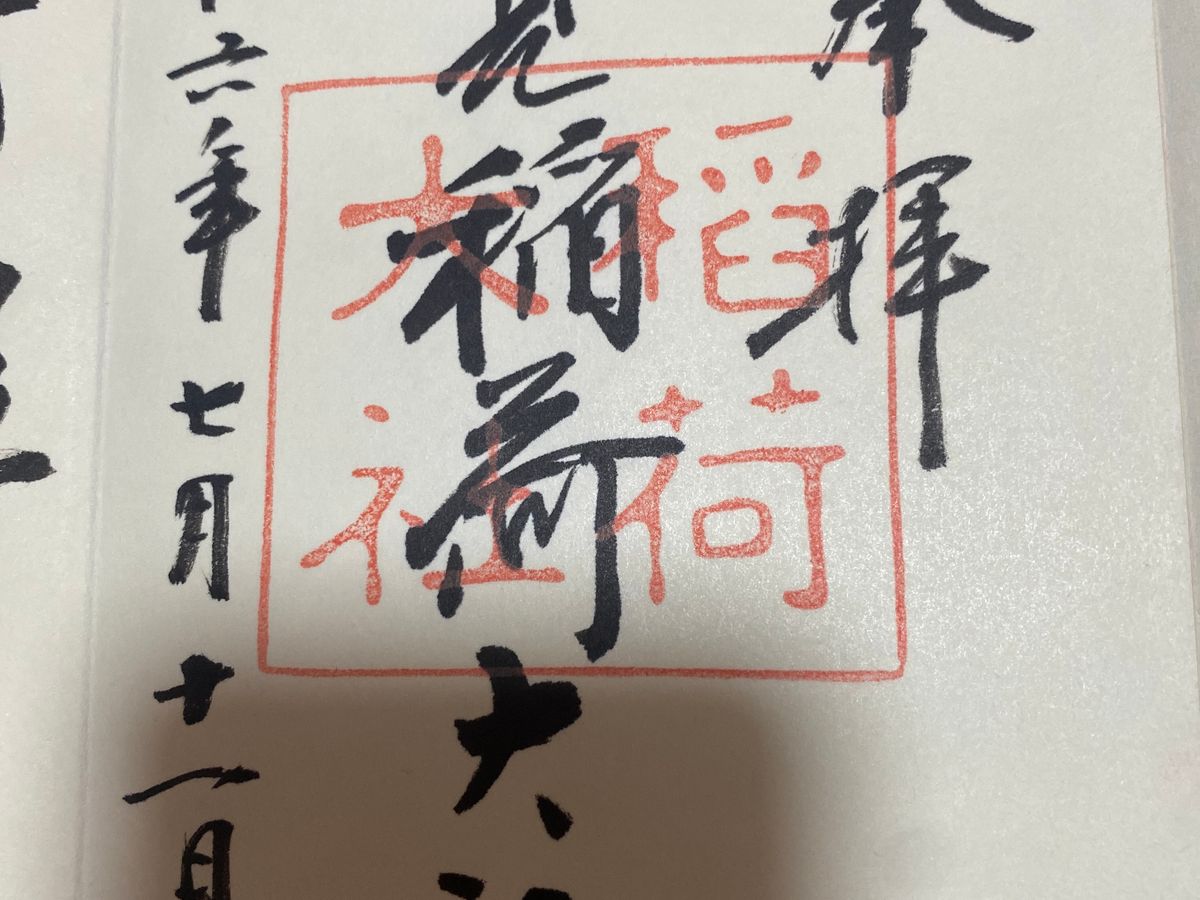 奉拝
見稲荷大
稻荷
大社
六年七月十一日